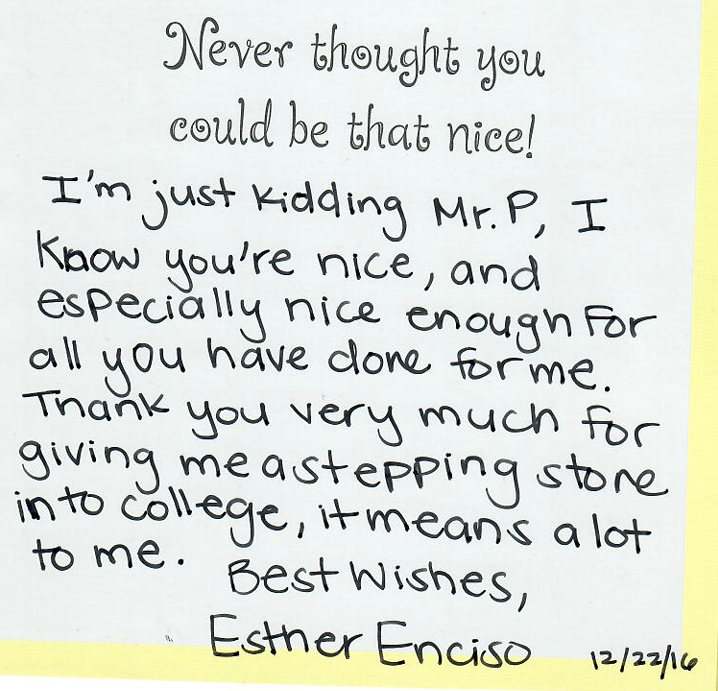 Never thought you
could be that nice!
I'm just kidding Mr. P, I
know you're nice, and
especially nice enough for
all you have done for me.
Thank you very much for
giving me a stepping stone
into college, it means a lot
to me.
Best Wishes,
Esther Enciso
12/22/16